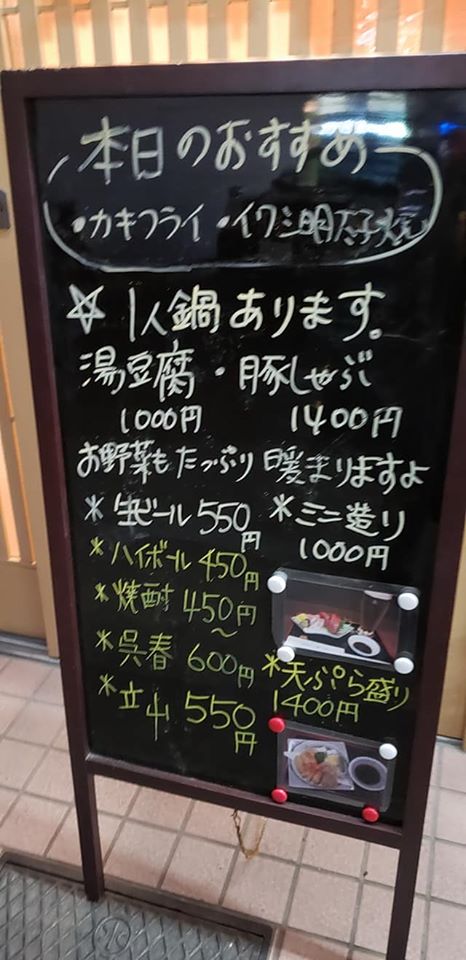 本日のおすすめ
・カキフライ ・イワシ明太子焼
☆ 1人鍋あります。
湯豆腐・豚しゃぶ
1000円 1400円
お野菜もたっぷり 暖まりますよ
*生ビール 550円
*ミニ造り
1000円
*ハイボール 450円
*焼酎 450円~
*呉春 600円
*天ぷら盛り
1400円
*立山 550円